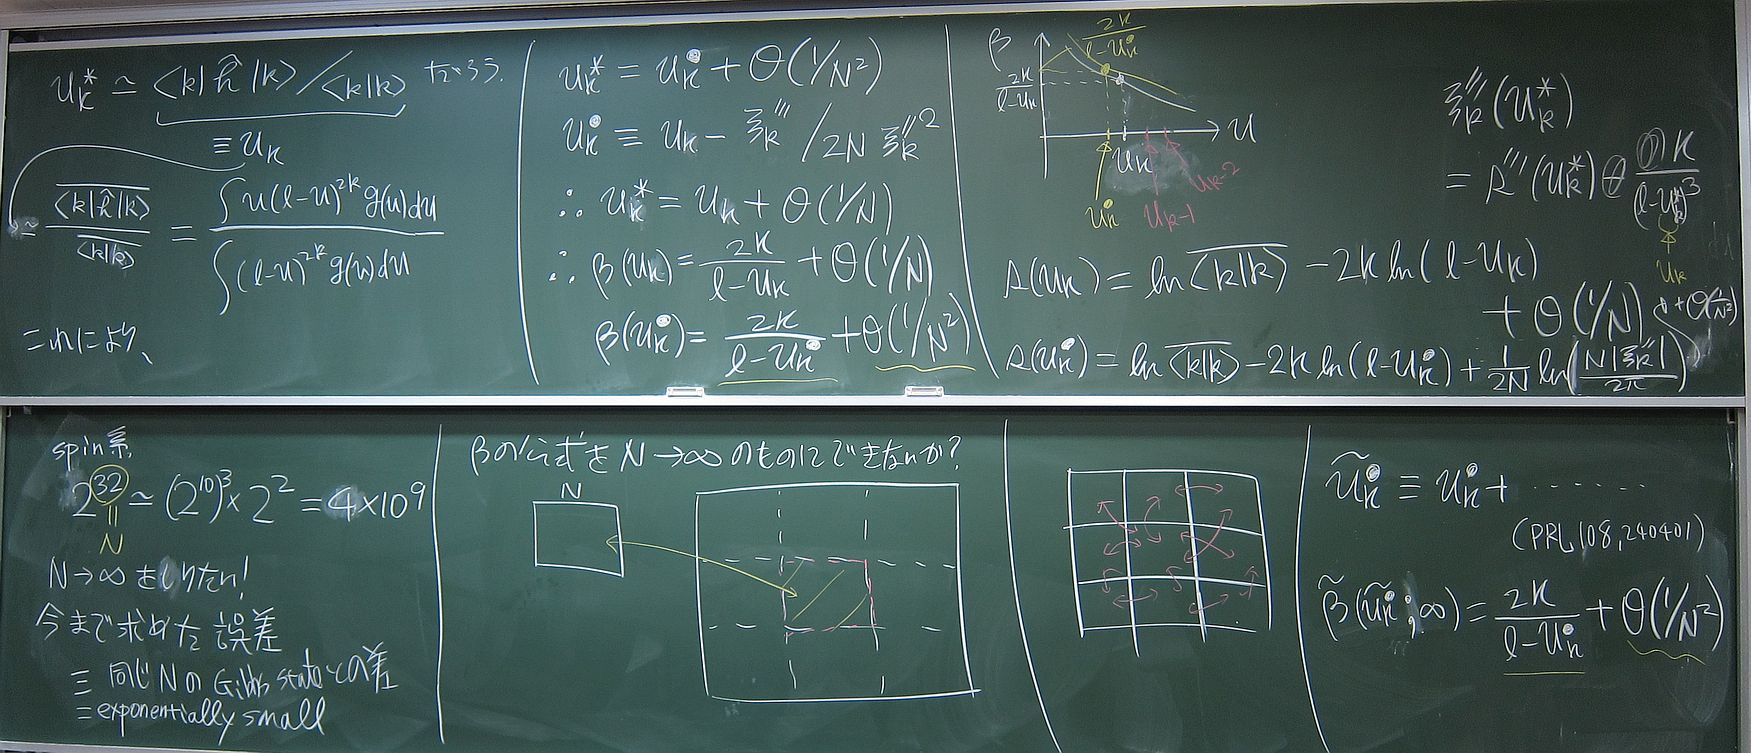 u*k ≃ <k|ĥ|k>/<k|k> だろう.
≡ uk
≃ <k|ĥ|k> / <k|k> = ∫u(l-u)^2k g(u)du / ∫(l-u)^2k g(u)du
これにより、
u*k = u•k + O(1/N²)
u•k ≡ uk - ξ'''k / 2N ξ''k²
∴ u*k = uk + O(1/N)
∴ β(uk) = 2k/(l-uk) + O(1/N)
β(u•k) = 2k/(l-u•k) + O(1/N²)
β
2k/(l-u•k)
2k/(l-uk)
u
uk
uk-2
u•k
uk-1
ξ'''k(u*k)
= s'''(u*k) k/(l-u*k)³
uk
s(uk) = ln<k|k> - 2k ln(l-uk)
+ O(1/N)
s(u•k) = ln<k|k> - 2k ln(l-u•k) + 1/2N ln(N|ξ''k|/2π)
+O(1/N²)
spin系
2^32 ≃ (2^10)^3 × 2^2 = 4×10^9
N
N→∞をしりたい!
今まで求めた誤差
≡ 同じNのGibbs stateとの差
= exponentially small
βの公式をN→∞のものにできないか?
N
ũ•k ≡ u•k + ......
(PRL 108, 240401)
β̃(ũ•k;∞) = 2k/(l-u•k) + O(1/N²)